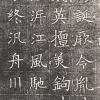 誕厥令胤
英擅美鉤
沂江風馳
終汎舟川